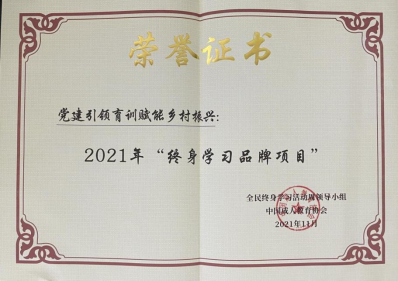 荣誉证书
党建引领育训赋能乡村振兴:
2021年“终身学习品牌项目”
全民终身学习活动周领导小组
中国成人教育协会
2021年11月